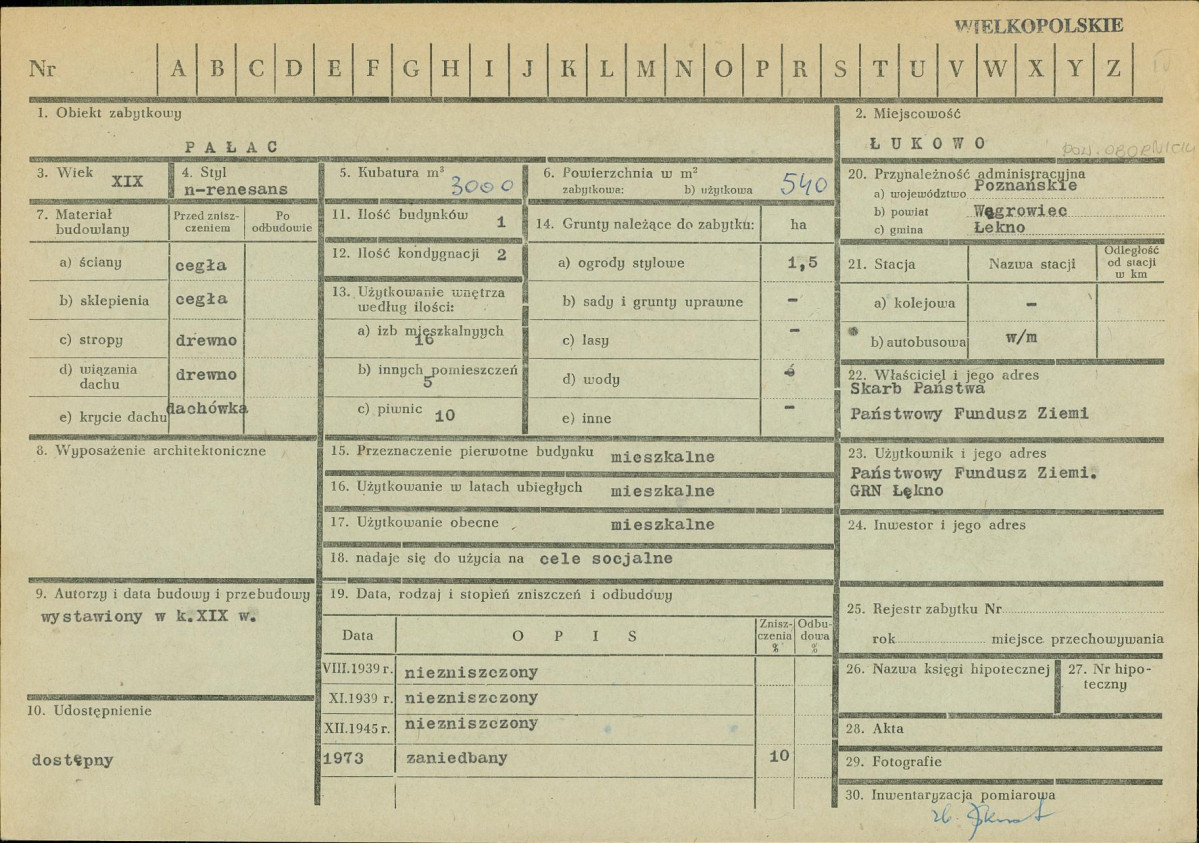 WIELKOPOLSKIE
Nr A B C D E F G H I J K L M N O P R S T U V W X Y Z IV
1. Obiekt zabytkowy
PAŁAC
2. Miejscowość
ŁUKOWO
POW. OBORNICKI
3. Wiek XIX
4. Styl
n-renesans
5. Kubatura m³ 3000
6. Powierzchnia w m²
zabytkowa: b) użytkowa 540
20. Przynależność administracyjna
a) województwo Poznańskie
b) powiat Węgrowiec
c) gmina Łekno
7. Materiał budowlany
Przed zniszczeniem
Po odbudowie
a) ściany cegła
b) sklepienia cegła
c) stropy drewno
d) wiązania dachu drewno
e) krycie dachu dachówka
11. Ilość budynków 1
12. Ilość kondygnacji 2
13. Użytkowanie wnętrza
według ilości:
a) izb mieszkalnych
16
b) innych pomieszczeń
5
c) piwnic 10
14. Grunty należące do zabytku: ha
a) ogrody stylowe 1,5
b) sady i grunty uprawne -
c) lasy -
d) wody
e) inne -
21. Stacja
Nazwa stacji
Odległość
od stacji
w km
a) kolejowa -
b) autobusowa w/m
22. Właściciel i jego adres
Skarb Państwa
Państwowy Fundusz Ziemi
8. Wyposażenie architektoniczne
15. Przeznaczenie pierwotne budynku mieszkalne
16. Użytkowanie w latach ubiegłych mieszkalne
17. Użytkowanie obecne mieszkalne
18. nadaje się do użycia na cele socjalne
23. Użytkownik i jego adres
Państwowy Fundusz Ziemi.
GRN Łękno
24. Inwestor i jego adres
9. Autorzy i data budowy i przebudowy
wystawiony w k.XIX w.
19. Data, rodzaj i stopień zniszczeń i odbudowy
Data
OPIS
Znisz-
czenia
%
Odbu-
dowa
%
VIII.1939 r. niezniszczony
XI.1939 r. niezniszczony
XII.1945 r. niezniszczony
1973 zaniedbany 10
10. Udostępnienie
dostępny
25. Rejestr zabytku Nr
rok miejsce przechowywania
26. Nazwa księgi hipotecznej
27. Nr hipo-
teczny
28. Akta
29. Fotografie
30. Inwentaryzacja pomiarowa